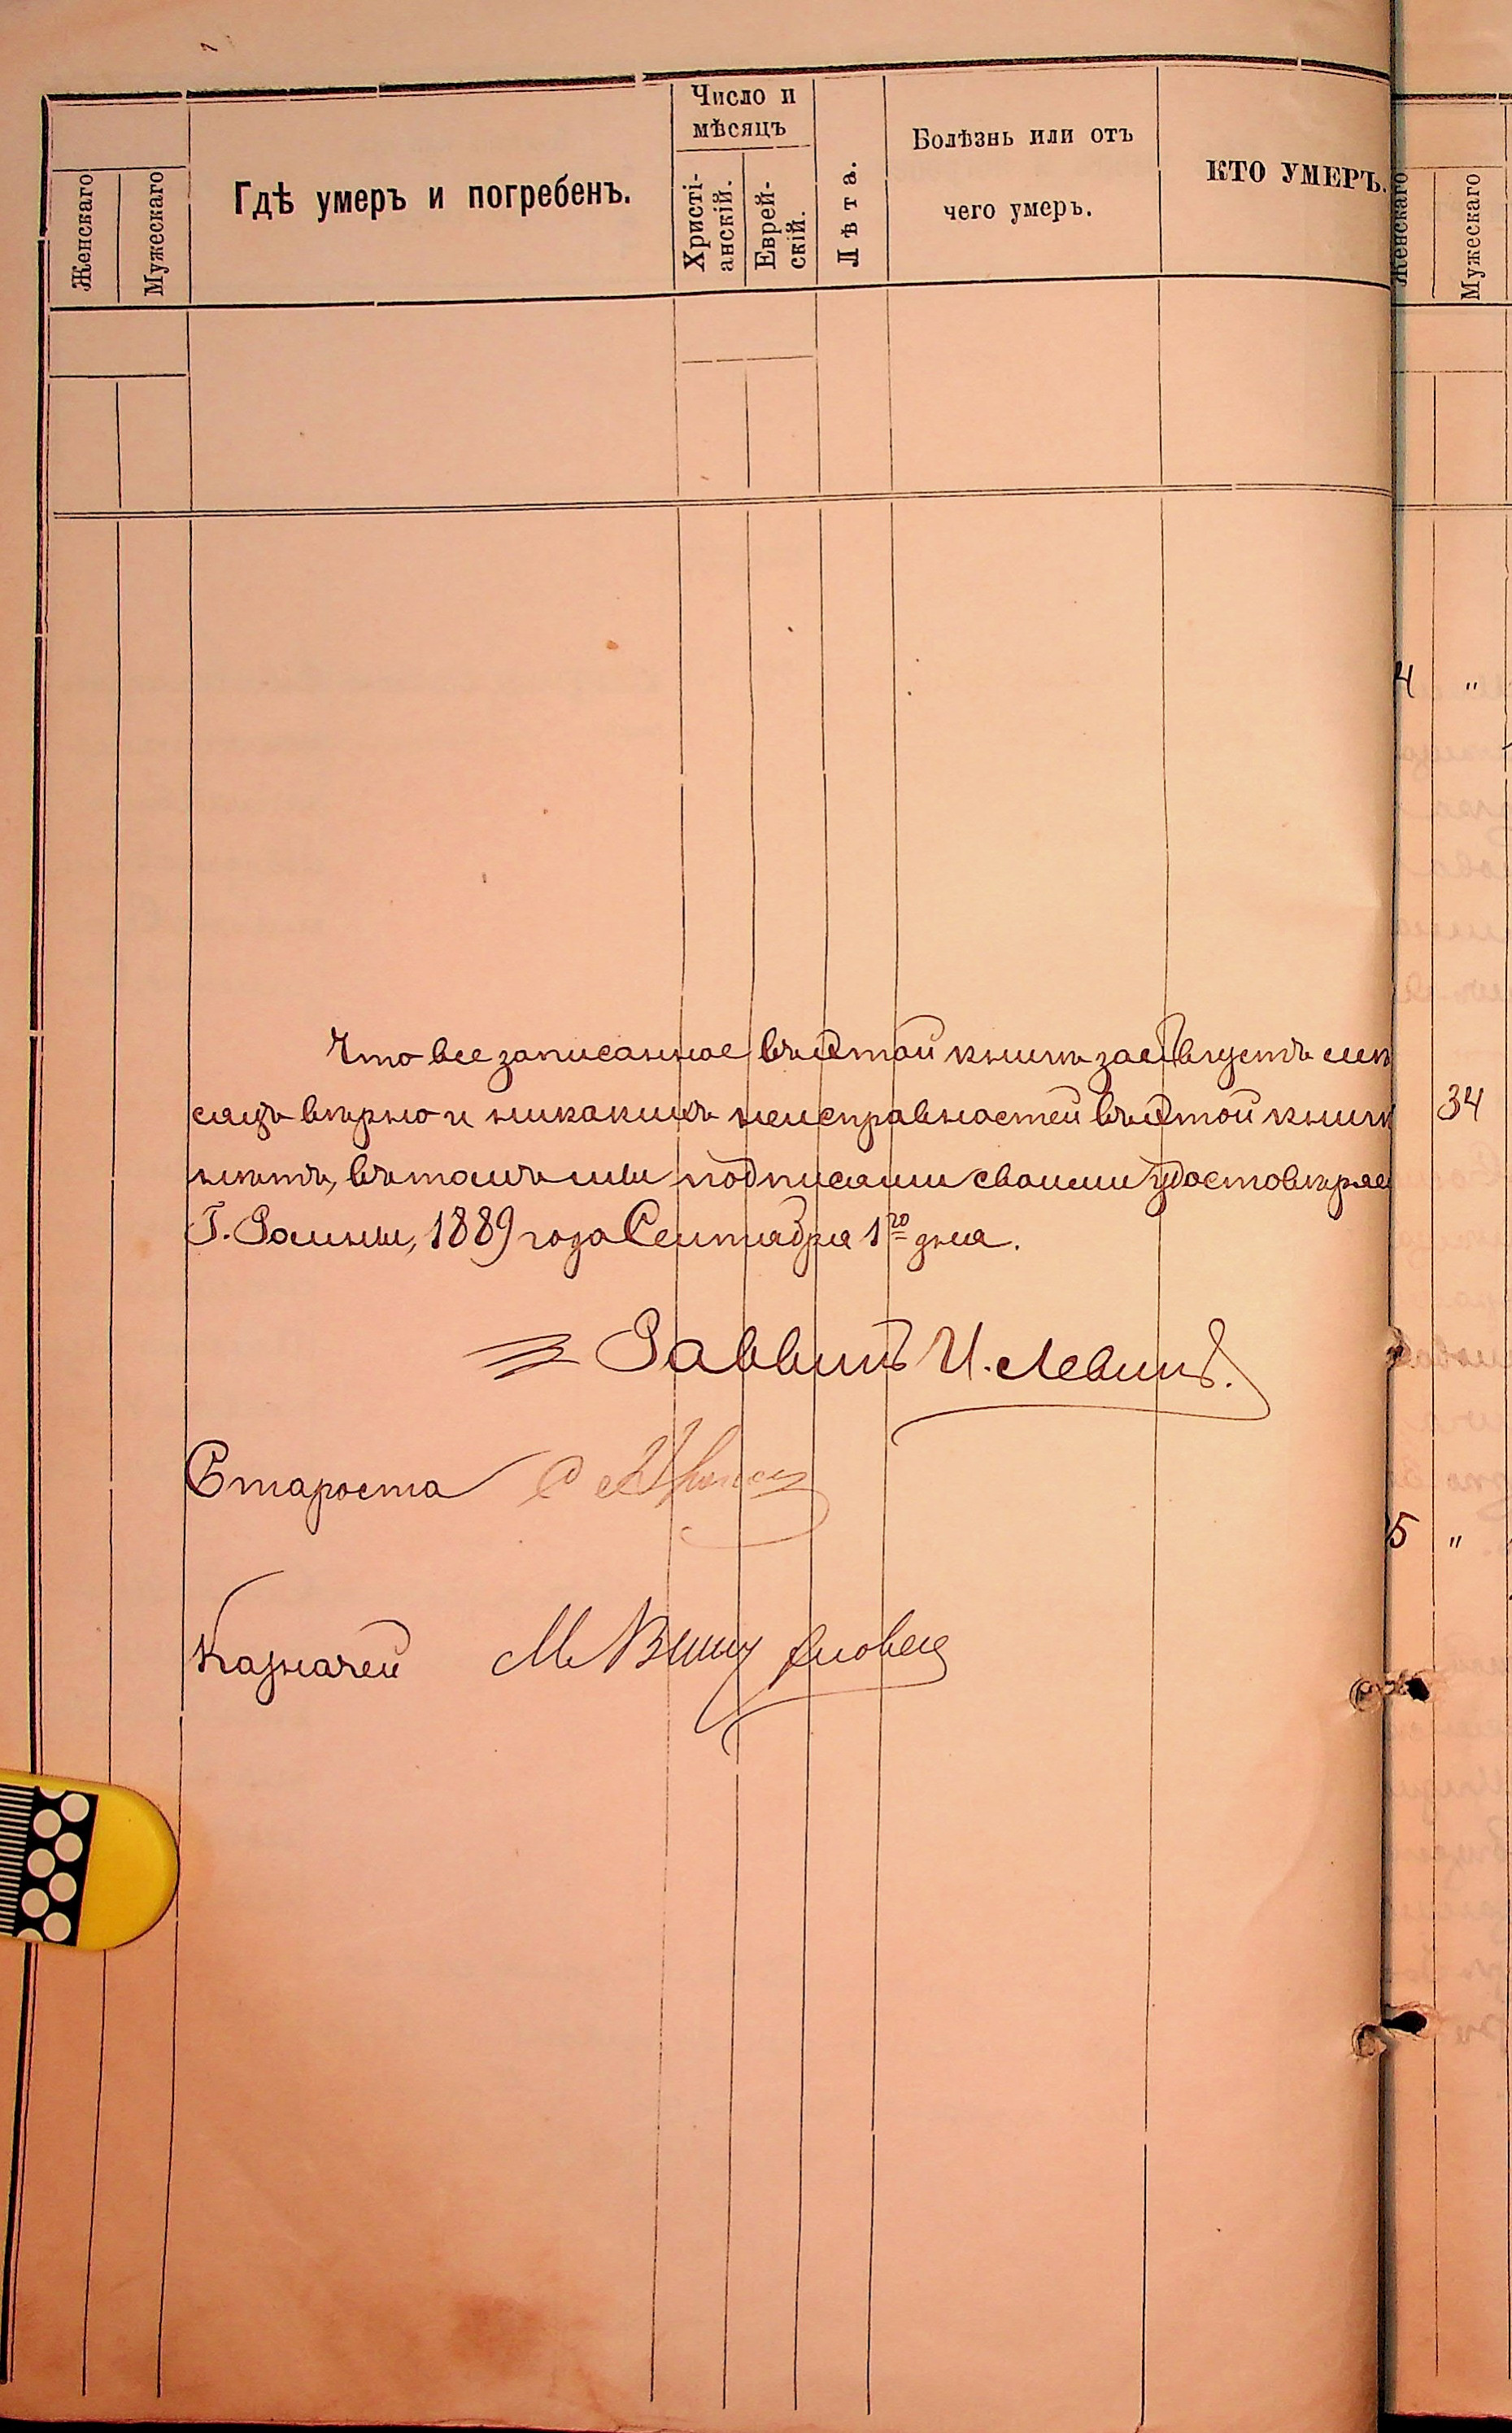 Женскаго
Мужескаго
Гдѣ умеръ и погребенъ.
Число и
мѣсяцъ
Христі-
анскій.
Еврей-
скій.
Лѣта.
Болѣзнь или отъ
чего умеръ.
КТО УМЕРЪ.
Женскаго
Мужескаго
Что все записанное въ этой книгѣ за Августъ мѣ
сяцъ вѣрно и никакихъ неисправностей въ этой книгѣ
нѣтъ, въ томъ мы подписами своими удостовѣряе
Г. Ромны, 1889 года Сентября 1го дня.
Раввинъ И. Левинъ.
Староста
Казначей М
4 "
34
5 "